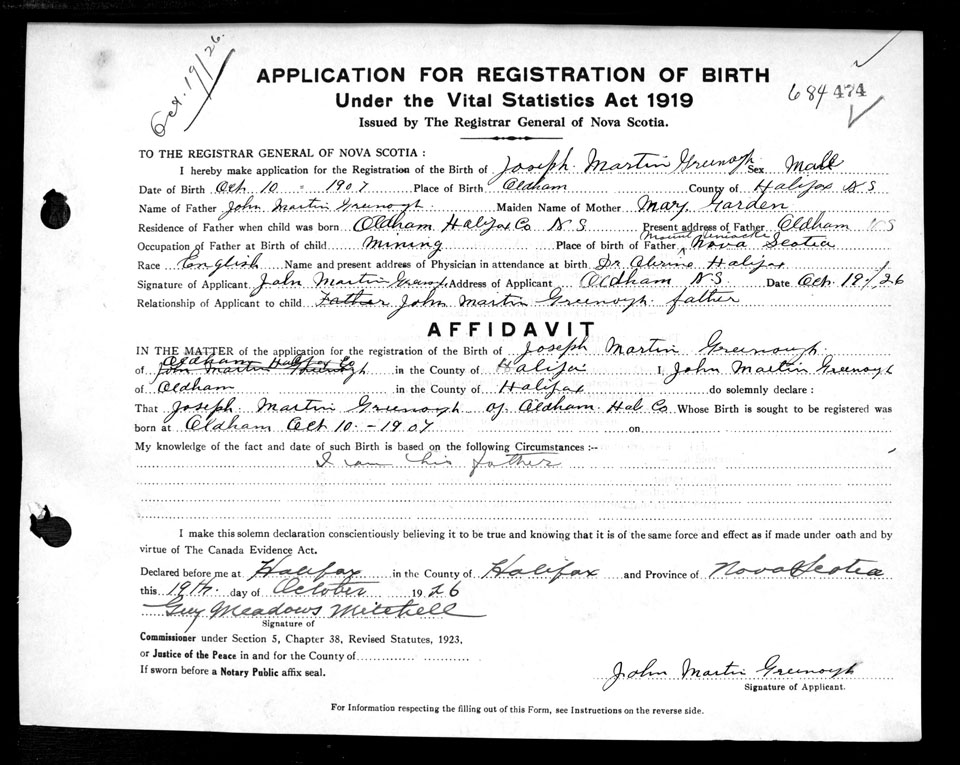 Oct. 19/26.
APPLICATION FOR REGISTRATION OF BIRTH
Under the Vital Statistics Act 1919
684 474
Issued by The Registrar General of Nova Scotia.
TO THE REGISTRAR GENERAL OF NOVA SCOTIA :
I hereby make application for the Registration of the Birth of Joseph Martin Greenogh Sex Male
Date of Birth Oct 10 - 1907 Place of Birth Oldham County of Halifax N S
Name of Father John Martin Greenogh. Maiden Name of Mother Mary Garden
Residence of Father when child was born Oldham Halifax Co N S Present address of Father Oldham N S
Occupation of Father at Birth of child Mining Place of birth of Father Mount Uniacke Nova Scotia
Race English Name and present address of Physician in attendance at birth Dr. Halifax
Signature of Applicant John Martin Greenogh Address of Applicant Oldham N.S. Date Oct. 19/26
Relationship of Applicant to child Father John Martin Greenogh. father
AFFIDAVIT
IN THE MATTER of the application for the registration of the Birth of Joseph Martin Greenough.
Oldham Halifax Co
of John Martin Greenogh in the County of Halifax I, John Martin Greenogh
of Oldham in the County of Halifax do solemnly declare :
That Joseph Martin Greenogh of Oldham Hal Co Whose Birth is sought to be registered was
born at Oldham Oct 10. - 1907 on
My knowledge of the fact and date of such Birth is based on the following Circumstances :--
I am his father
I make this solemn declaration conscientiously believing it to be true and knowing that it is of the same force and effect as if made under oath and by
virtue of The Canada Evidence Act.
Declared before me at Halifax in the County of Halifax and Province of Nova Scotia
this 19th. day of October 1926
Guy Meadows Mitchell
Signature of
Commissioner under Section 5, Chapter 38, Revised Statutes, 1923,
or Justice of the Peace in and for the County of
If sworn before a Notary Public affix seal.
John Martin Greenogh
Signature of Applicant.
For Information respecting the filling out of this Form, see Instructions on the reverse side.